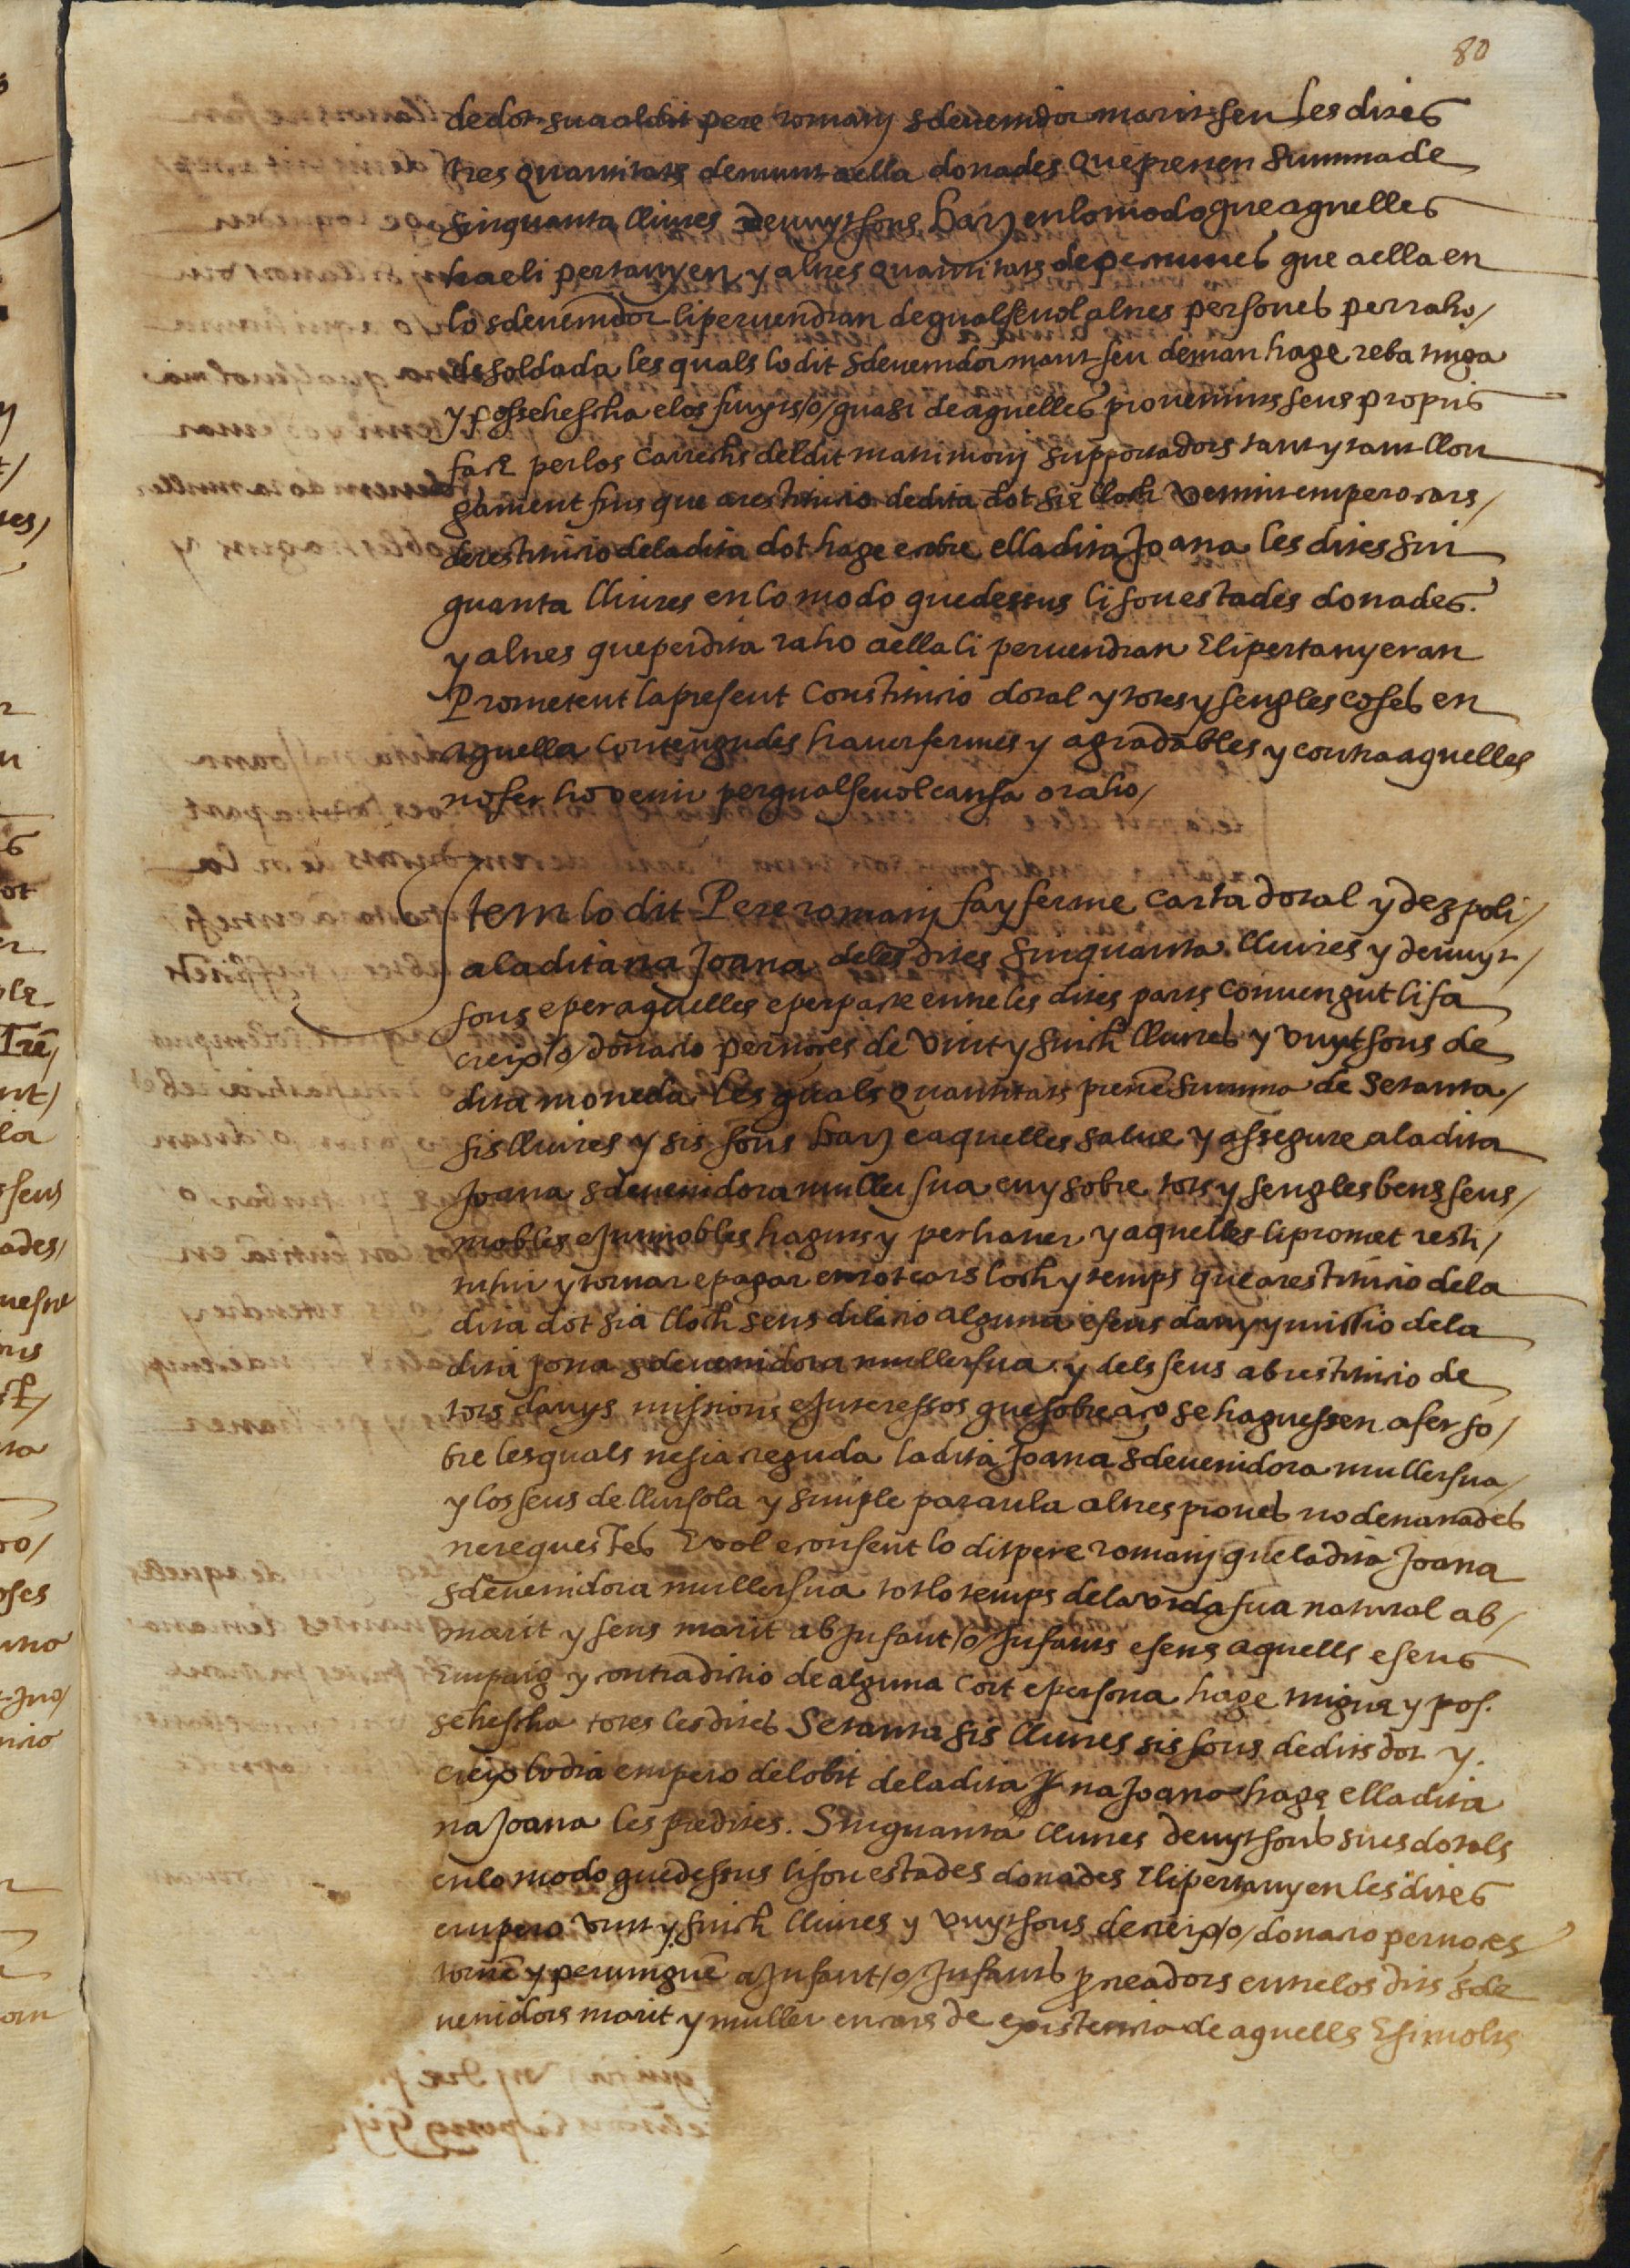 80
de dot sua al dit pere romanj sdevenidor marit seu les dites
tres quantitats demunt a ella donades que prenen summa de
sinquanta lliures devuyt sous barz en lo modo que aquelles
ha e li pertanyen y altres quantitats de pecunies que a ella en
lo sdevenidor li pervendran de qualsevol altres persones per raho/
de soldada les quals lo dit sdevenidor marit seu deman hage reba tinga
y possehescha e los fruyts /o/ quasi de aquelles provenints seus propris
face per los carrechs del dit matrimonj supportadors tant y tant llon
gament fins que a restitucio de dita dot sie lloch Venint empero cars/
de restitucio de la dita dot hage e cobre ella dita Joana les dites sin
quanta lliures en lo modo que dessus li son estades donades.
y altres que per dita raho a ella li pervendran E li pertanyeran
Prometent la present Constitucio dotal y totes y sengles coses en
aquella contengudes haver fermes y agradables y contra aquelles
no fer ho venir per qualsevol causa o raho/
Item lo dit Pere romanj fa y ferme carta dotal y de spoli/
a la dita na Joana de les dites sinquanta lliures y devuyt/
sous e per aquelles e per pacte entre les dites parts convengut li fa
creix /o/ donacio per noces de vint y sinch lliures y vuyt sous de
dita moneda Les quals quantitats prenē summa de Setanta/
sis lliures y sis sous barz e aquelles salve y assegure a la dita
Joana sdevenidora muller sua en y sobre tots y sengles bens seus/
mobles e Jmmobles haguts y per haver y aquelles li promet resti/
tuhir y tornar e pagar en tot cars loch y temps que a restitucio de la
dita dot sia lloch sens dilacio alguna e sens dany y missio de la
dita Jona sdevenidora muller sua y dels seus ab restitucio de
tots danys missions e Jnteressos que sobre aço se haguessen a fer so/
bre les quals ne sia creguda la dita Joana sdevenidora muller sua/
y los seus de llur sola y simple paraula altres proves no demanades
ne requestes E vol e consent lo dit pere romanj que la dita Joana
sdevenidora muller sua tot lo temps de la vida sua natural ab/
marit y sens marit ab Jnfant /o/ Jnfants e sens aquells e sens
Empaig y contradictio de alguna Cort e persona hage tingue y pos.
sehescha totes les dites Setanta sis lliures sis sous de dits dot y.
creix lo dia empero del obit de la dita na Joana hage ella dita
na Joana les predites. Sinquanta lliures devuyt sous sues dotals
en lo modo que dessus li son estades donades E li pertanyen les dites
empero vint y sinch lliures y vuyt sous de creix /o/ donacio per noces
tornē y pervinguē a Jnfant /o/ Jnfants procreadors entre los dits sde
venidors marit y muller en cars de existencia de aquells E si molts